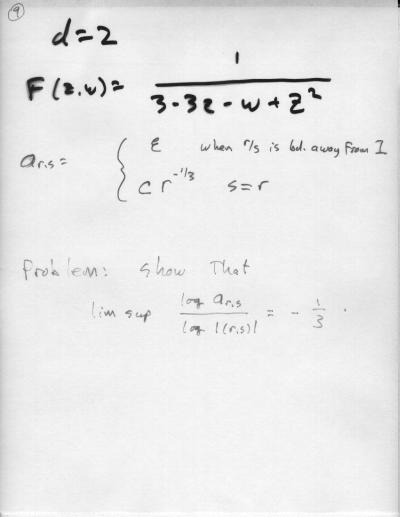 9
d=2
F(z,w)= 1 / 3-3z-w+z²
a_{r,s}= { ε when r/s is bd. away from 1
c r^{-1/3} s=r
Problem: show that
lim sup log a_{r,s} / log |(r,s)| = - 1/3 .